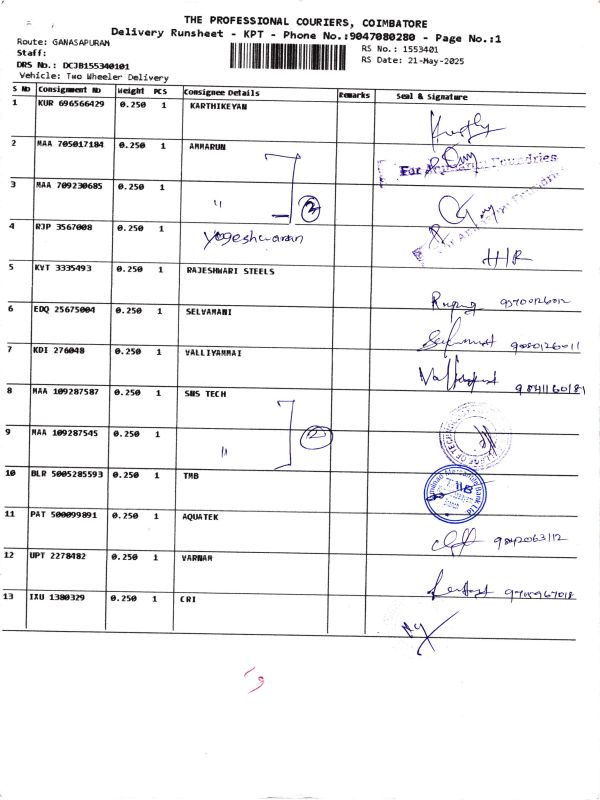 THE PROFESSIONAL COURIERS, COIMBATORE
Delivery Runsheet - KPT - Phone No.:9047080280 - Page No.:1
Route: GANASAPURAM
RS No.: 1553401
Staff:
RS Date: 21-May-2025
DRS No.: DCJB155340101
Vehicle: Two Wheeler Delivery
S No Consignment No Weight PCS Consignee Details Remarks Seal & Signature
1 KUR 696566429 0.250 1 KARTHIKEYAN
2 MAA 705017184 0.250 1 AMMARUN
For Foundries
3 MAA 709230685 0.250 1 " 2
4 RJP 3567008 0.250 1 Yogeshwaran H/R
5 KVT 3335493 0.250 1 RAJESHWARI STEELS
6 EDQ 25675004 0.250 1 SELVAMANI 9080126011
7 KDI 276048 0.250 1 VALLIYAMMAI 9841160181
8 MAA 109287587 0.250 1 SNS TECH
9 MAA 109287545 0.250 1 " 2
10 BLR 5005285593 0.250 1 TMB
11 PAT 500099891 0.250 1 AQUATEK 9842063112
12 UPT 2278482 0.250 1 VARNAM
13 IXU 1380329 0.250 1 CRI